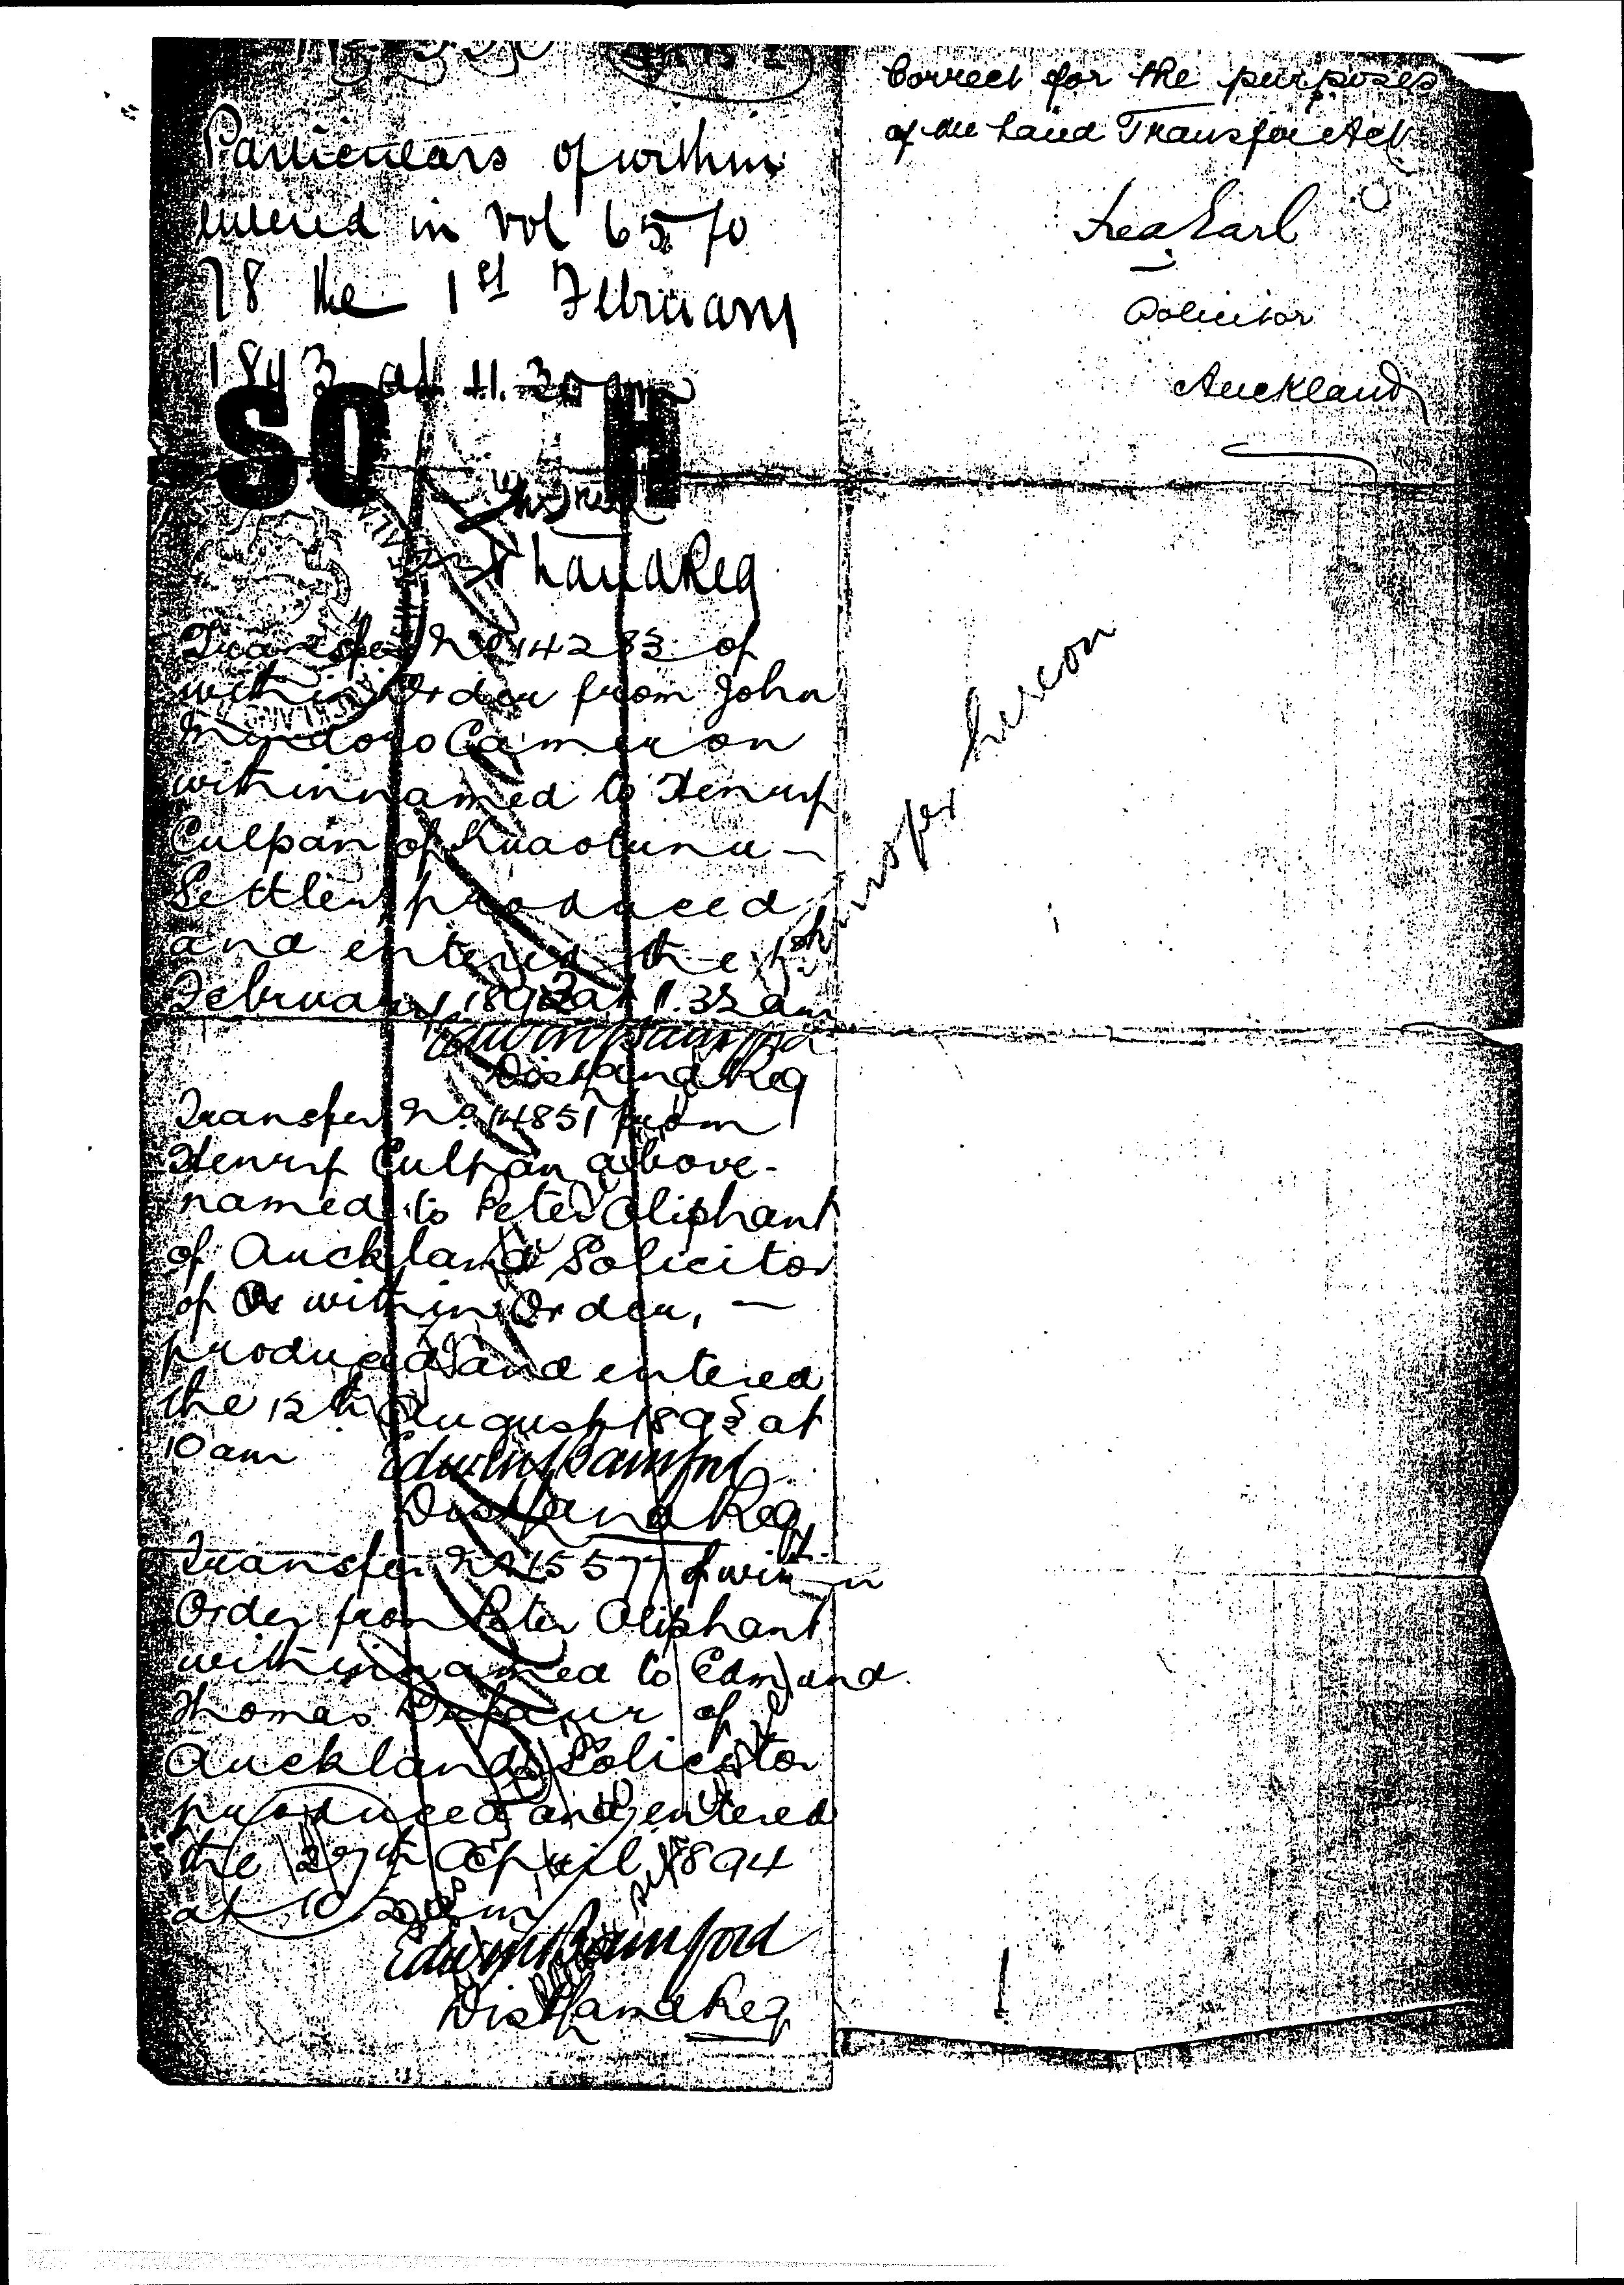 Particulars of within
entered in Vol 65 fo
78 the 1st February
1893 at 11.30 am
SO H
Land Reg
Transfer No 14283 of
within Order from John
Cameron
withinnamed to Henry
Culpan of Kuaotunu —
Settler produced
and entered the
February 1893 at 11.32 am
Edwin Bamford
Dist Land Reg
Transfer No 14851 from
Henry Culpan above-
named to Peter Oliphant
of Auckland Solicitor
of within Order, —
produced and entered
the 12th August 1893 at
10 am Edwin Bamford
Dist Land Reg
Transfer No 15577 of within
Order from Peter Oliphant
withinnamed to Edmund
Thomas Dufaur of
Auckland Solicitor
produced and entered
the 27th April 1894
at 10 am
Edwin Bamford
Dist Land Reg
Correct for the purposes
of the Land Transfer Act
Earl
Solicitor
Auckland
hereon